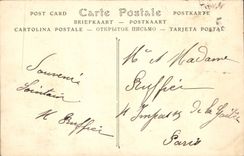 POST CARD Carte Postale POSTKARTE
BRIEFKAART — POSTKAART
CARTOLINA POSTALE — ОТКРЫТОЕ ПИСЬМО — TARJETA POSTAL
Souvenir
lointain
Ruffier
Mr et Madame
Ruffier
Impasse de la
Paris